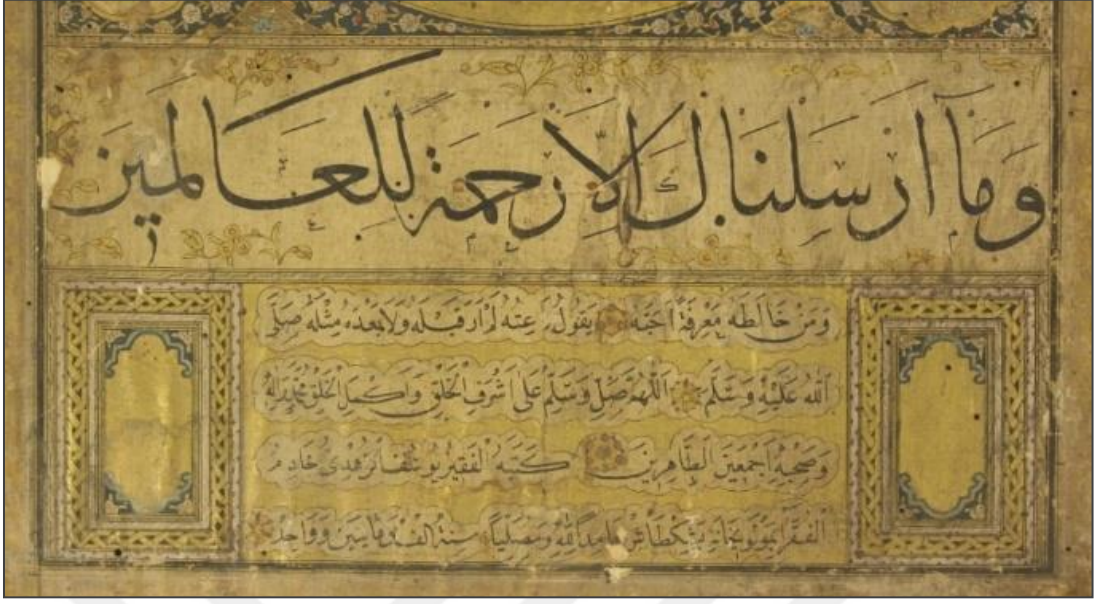 وما ارسلناك الا رحمة للعالمين
ومن خالطه معرفة احبه يقول ناعته لم ار قبله ولا بعده مثله صلى
الله عليه وسلم اللهم صل وسلم على اشرف الخلق واكمل الخلق محمد واله
وصحبه اجمعين الطاهرين كتبه الفقير زهدى خادم
الفقرا بشكطاش حامدا لله ومصليا سنة الف ومايتين وواحد